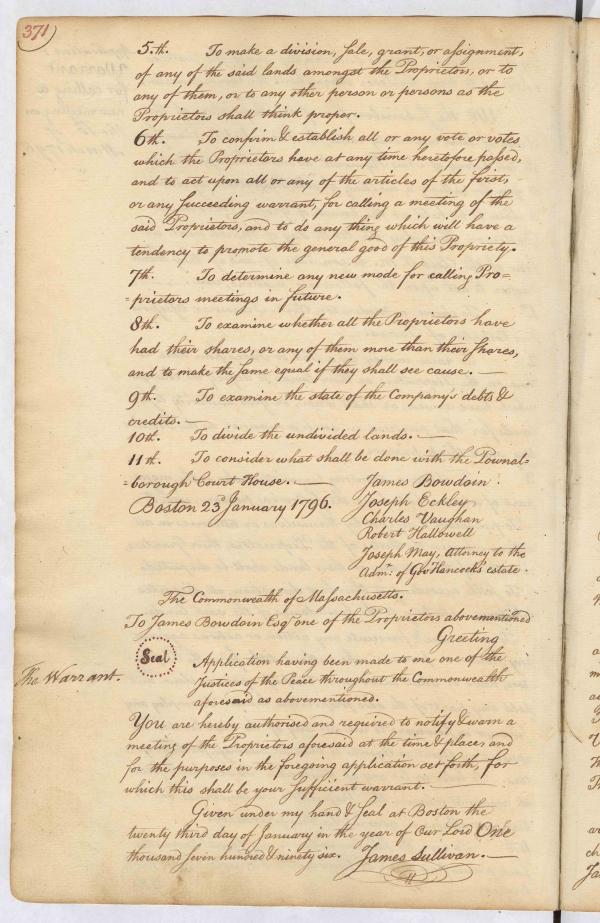 371
5.th. To make a division, sale, grant, or assignment,
of any of the said lands amongst the Proprietors, or to
any of them, or to any other person or persons as the
Proprietors shall think proper.
6th. To confirm & establish all or any vote or votes
which the Proprietors have at any time heretofore passed,
and to act upon all or any of the articles of the first,
or any succeeding warrant, for calling a meeting of the
said Proprietors, and to do any thing which will have a
tendency to promote the general good of this Propriety.
7th. To determine any new mode for calling Pro=
=prietors meetings in future.
8th. To examine whether all the Proprietors have
had their shares, or any of them more than their shares,
and to make the same equal if they shall see cause. —
9th. To examine the state of the Company's debts &
credits. —
10th. To divide the undivided lands. —
11th. To consider what shall be done with the Pownal=
=borough Court House. —
James Bowdoin.
Boston 23d January 1796.
Joseph Eckley
Charles Vaughan
Robert Hallowell
Joseph May, Attorney to the
Admr. of Govr Hancock's estate.
The Commonwealth of Massachusetts.
To James Bowdoin Esqr one of the Proprietors abovementioned
Greeting
Seal
The Warrant.
Application having been made to me one of the
Justices of the Peace throughout the Commonwealth
aforesaid as abovementioned.
You are hereby authorised and required to notify & warn a
meeting of the Proprietors aforesaid at the time & place and
for the purposes in the foregoing application set forth, for
which this shall be your sufficient warrant. —
Given under my hand & Seal at Boston the
twenty third day of January in the year of Our Lord One
thousand seven hundred & ninety six. James Sullivan. —